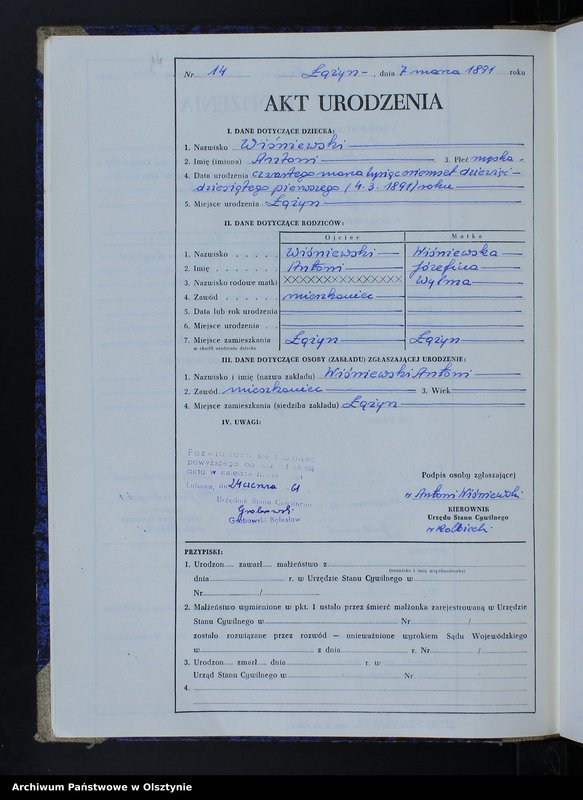 14
Nr 14 Łążyn - , dnia 7 marca 1891 roku
AKT URODZENIA
I. DANE DOTYCZĄCE DZIECKA:
1. Nazwisko Wiśniewski
2. Imię (imiona) Antoni 3. Płeć męska -
4. Data urodzenia czwartego marca tysiąc osiemset dziewięć-
dziesiątego pierwszego (4.3.1891) roku
5. Miejsce urodzenia Łążyn
II. DANE DOTYCZĄCE RODZICÓW:
Ojciec Matka
1. Nazwisko Wiśniewski Wiśniewska
2. Imię Antoni Józefina
3. Nazwisko rodowe matki XXXXXXXXXXXXXX Wylma
4. Zawód mieszkaniec
5. Data lub rok urodzenia
6. Miejsce urodzenia
7. Miejsce zamieszkania Łążyn Łążyn
w chwili urodzenia dziecka
III. DANE DOTYCZĄCE OSOBY (ZAKŁADU) ZGŁASZAJĄCEJ URODZENIE:
1. Nazwisko i imię (nazwa zakładu) Wiśniewski Antoni
2. Zawód mieszkaniec 3. Wiek
4. Miejsce zamieszkania (siedziba zakładu) Łążyn
IV. UWAGI:
Poświadcza się zgodność
powyższego
aktu w księdze
dn. 24 czerwca 61
Urzędnik Stanu Cywilnego
Grabowski
Grabowski Bolesław
Podpis osoby zgłaszającej
Antoni Wiśniewski
KIEROWNIK
Urzędu Stanu Cywilnego
PRZYPISKI:
1. Urodzon zawarł małżeństwo z
(nazwisko i imię współmałżonka)
dnia r. w Urzędzie Stanu Cywilnego w
Nr /
2. Małżeństwo wymienione w pkt. 1 ustało przez śmierć małżonka zarejestrowaną w Urzędzie
Stanu Cywilnego w Nr /
zostało rozwiązane przez rozwód – unieważnione wyrokiem Sądu Wojewódzkiego
w z dnia r. Nr /
3. Urodzon zmarł dnia r. w
Urząd Stanu Cywilnego w Nr
4.
Archiwum Państwowe w Olsztynie